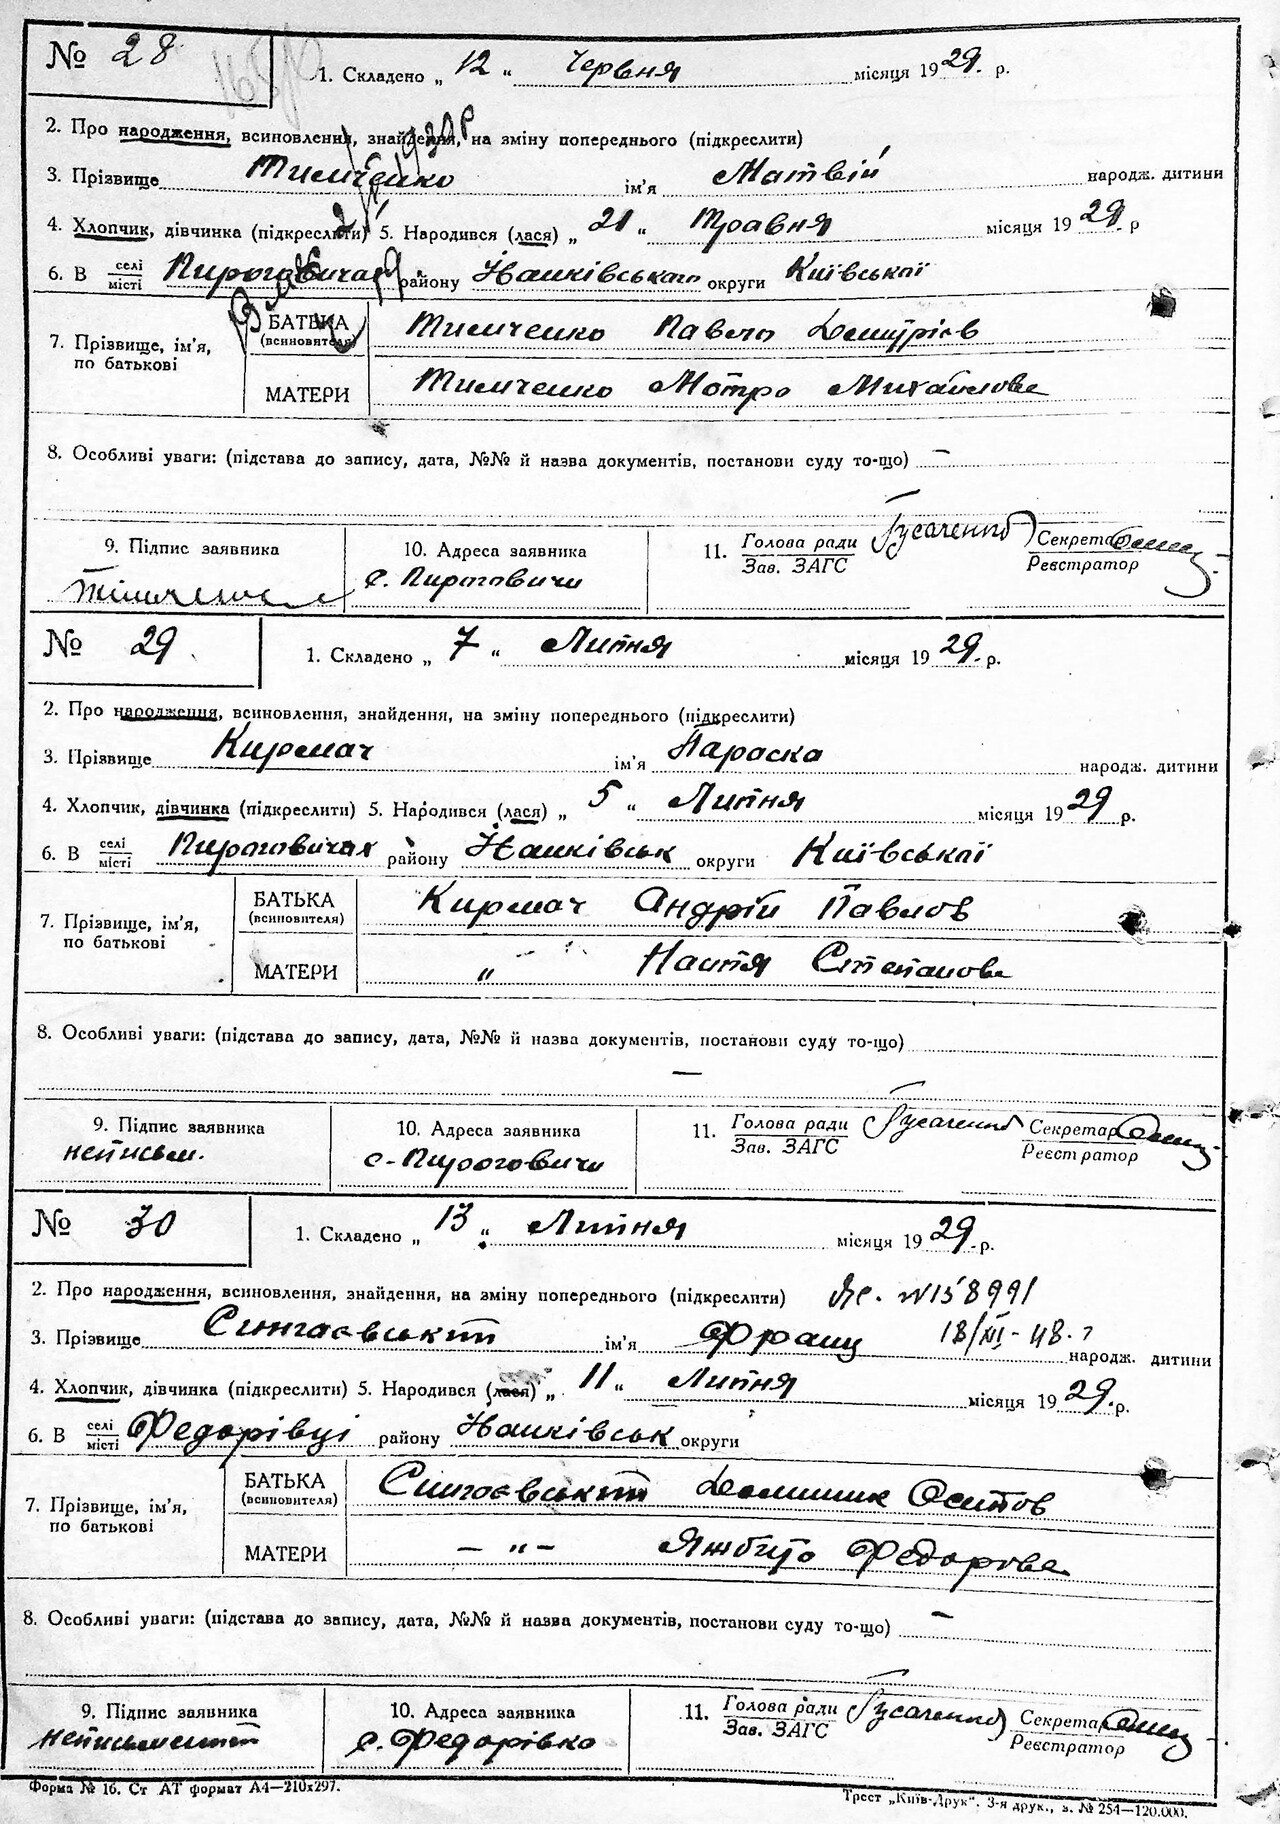 № 28
1. Складено „ 12 “ Червня місяця 1929. р.
2. Про народження, всиновлення, знайдення, на зміну попереднього (підкреслити)
3. Прізвище Тимченко ім'я Матвій народж. дитини
4. Хлопчик, дівчинка (підкреслити) 5. Народився (лася) „ 21 “ Травня місяця 1929. р
6. В селі місті Пироговичах району Іванківського округи Київської
7. Прізвище, ім'я, по батькові
БАТЬКА (всиновителя) Тимченко Павло Дмитрієв
МАТЕРИ Тимченко Мотра Михайлова
8. Особливі уваги: (підстава до запису, дата, №№ й назва документів, постанови суду то-що) —
9. Підпис заявника
Тимченко
10. Адреса заявника
с. Пироговичи
11. Голова ради Зав. ЗАГС Гусаченко
Секретар Реєстратор
№ 29
1. Складено „ 7 “ Липня місяця 1929. р.
2. Про народження, всиновлення, знайдення, на зміну попереднього (підкреслити)
3. Прізвище Кирмач ім'я Параска народж. дитини
4. Хлопчик, дівчинка (підкреслити) 5. Народився (лася) „ 5 “ Липня місяця 1929 р.
6. В селі місті Пироговичах району Іванківськ округи Київської
7. Прізвище, ім'я, по батькові
БАТЬКА (всиновителя) Кирмач Андрій Павлов
МАТЕРИ „ Настя Степанова
8. Особливі уваги: (підстава до запису, дата, №№ й назва документів, постанови суду то-що)
—
9. Підпис заявника
неписьм.
10. Адреса заявника
с. Пироговичи
11. Голова ради Зав. ЗАГС Гусаченко
Секретар Реєстратор
№ 30
1. Складено „ 13 “ Липня місяця 1929. р.
2. Про народження, всиновлення, знайдення, на зміну попереднього (підкреслити) №158991
3. Прізвище Сингаєвський ім'я Франц 18/XII-48. народж. дитини
4. Хлопчик, дівчинка (підкреслити) 5. Народився (лася) „ 11 “ Липня місяця 1929. р.
6. В селі місті Федорівці району Іванківськ округи
7. Прізвище, ім'я, по батькові
БАТЬКА (всиновителя) Сингаєвський Доминик Осипов
МАТЕРИ — „ — Яжбито Федорова
8. Особливі уваги: (підстава до запису, дата, №№ й назва документів, постанови суду то-що) —
9. Підпис заявника
неписьменний
10. Адреса заявника
с. Федорівка
11. Голова ради Зав. ЗАГС Гусаченко
Секретар Реєстратор
Форма № 16. Ст АТ формат А4—210х297.
Трест „Київ-Друк“. 3-я друк., з. № 254—120.000.